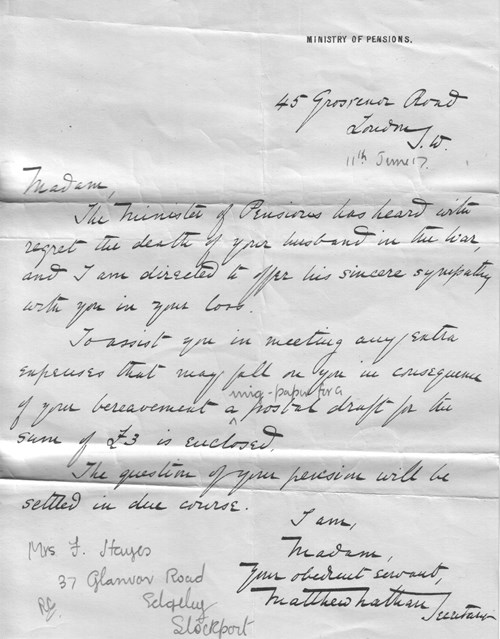 MINISTRY OF PENSIONS.
45 Grosvenor Road
London S.W.
11th June 17.
Madam,
The Minister of Pensions has heard with
regret the death of your husband in the War,
and I am directed to offer his sincere sympathy
with you in your loss.
To assist you in meeting any extra
expenses that may fall on you in consequence
ring-paper for a
of your bereavement a postal draft for the
sum of £3 is enclosed.
The question of your pension will be
settled in due course.
I am,
Madam,
Your obedient servant,
Matthew Nathan
Secretary
Mrs F. Hayes
37 Glanvor Road
Edgeley
Stockport